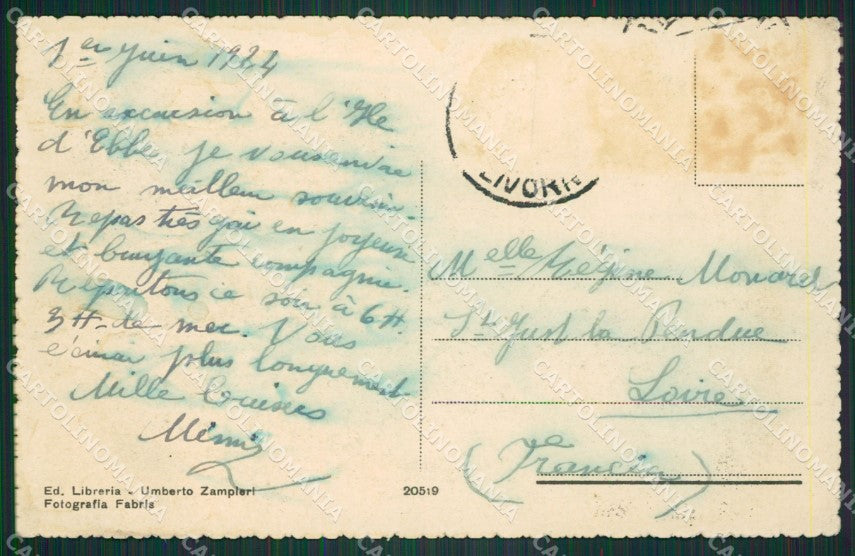 1er Juin 1924
En excursion à l'Ile
d'Elbe je vous envoie
mon meilleur souvenir.
Repas très gai en joyeuse
et bruyante compagnie.
Repartons ce soir à 6H.
3H. de mer. Vous
écrirai plus longuement
Mille bises
Mémé
LIVORN
Melle Régine Monard
St Just la Pendue
Loire
(Francia)
Ed. Libreria - Umberto Zampieri
Fotografia Fabris
20519
CARTOLINOMANIA